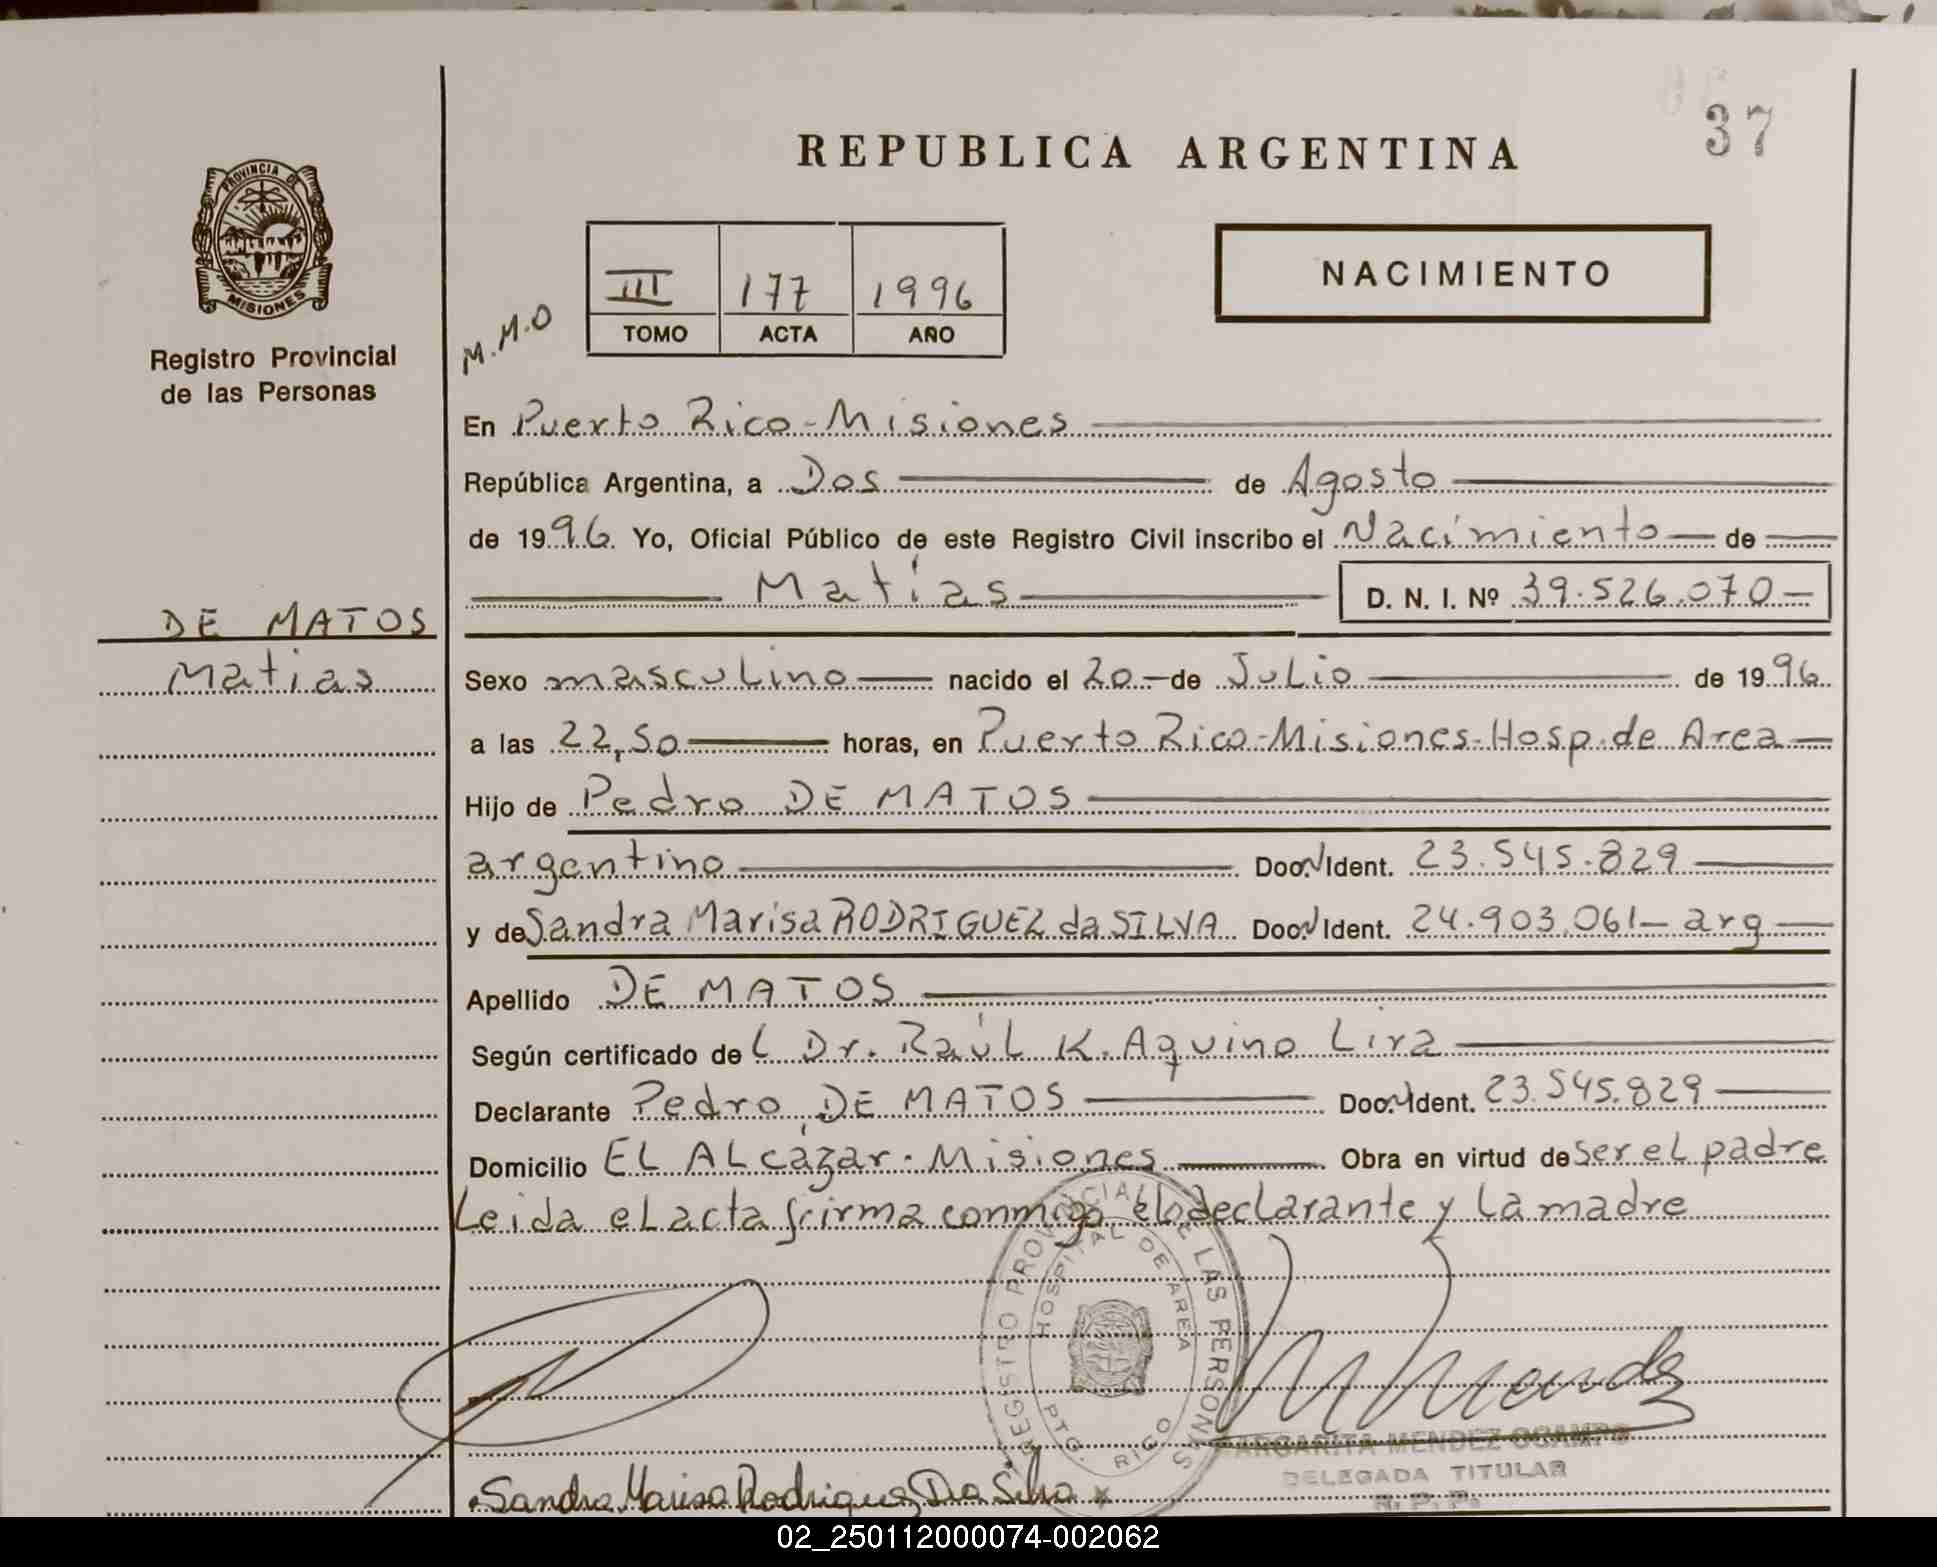 37
REPUBLICA ARGENTINA
PROVINCIA DE
MISIONES
Registro Provincial
de las Personas
NACIMIENTO
III 177 1996
TOMO ACTA AÑO
M.M.O
En Puerto Rico-Misiones
República Argentina, a Dos de Agosto
de 1996. Yo, Oficial Público de este Registro Civil inscribo el Nacimiento de
Matías D. N. I. Nº 39.526.070-
DE MATOS
Matias
Sexo masculino nacido el 20 de Julio de 1996
a las 22,50 horas, en Puerto Rico-Misiones-Hosp. de Area
Hijo de Pedro DE MATOS
argentino Doc. Ident. 23.545.829
y de Sandra Marisa RODRIGUEZ da SILVA Doc. Ident. 24.903.061- arg
Apellido DE MATOS
Según certificado del Dr. Raúl K. Aquino Lira
Declarante Pedro DE MATOS Doc. Ident. 23.545.829
Domicilio EL ALcázar. Misiones Obra en virtud de ser el padre
Leida el acta firma conmigo, el declarante y La madre
REGISTRO PROVINCIAL DE LAS PERSONAS
HOSPITAL DE AREA
PTO. RICO
M Mendez
MARGARITA MENDEZ OCAMPO
DELEGADA TITULAR
R. P. P.
Sandra Marisa Rodriguez Da Silva
02_250112000074-002062